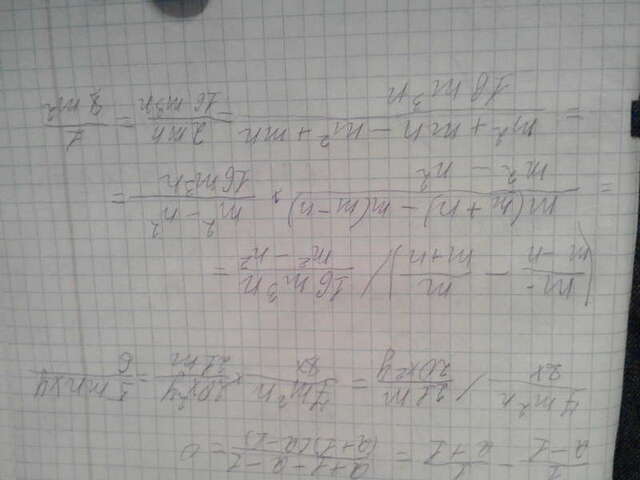 1/(a-1) - 1/(a+1) = (a+1-a-1)/((a+1)(a-1)) = 0
7m²n/2x / 21m/20x²y = 7m²n/8x × 20x²y/21m = 5mnxy/6
(m/(m-n) - m/(m+n)) / 16m³n/(m²-n²) =
= (m(m+n)-m(m-n))/(m²-n²) × (m²-n²)/16m³n =
= (m²+mn-m²+mn)/18m³n = 2mn/16m³n = 1/8m²